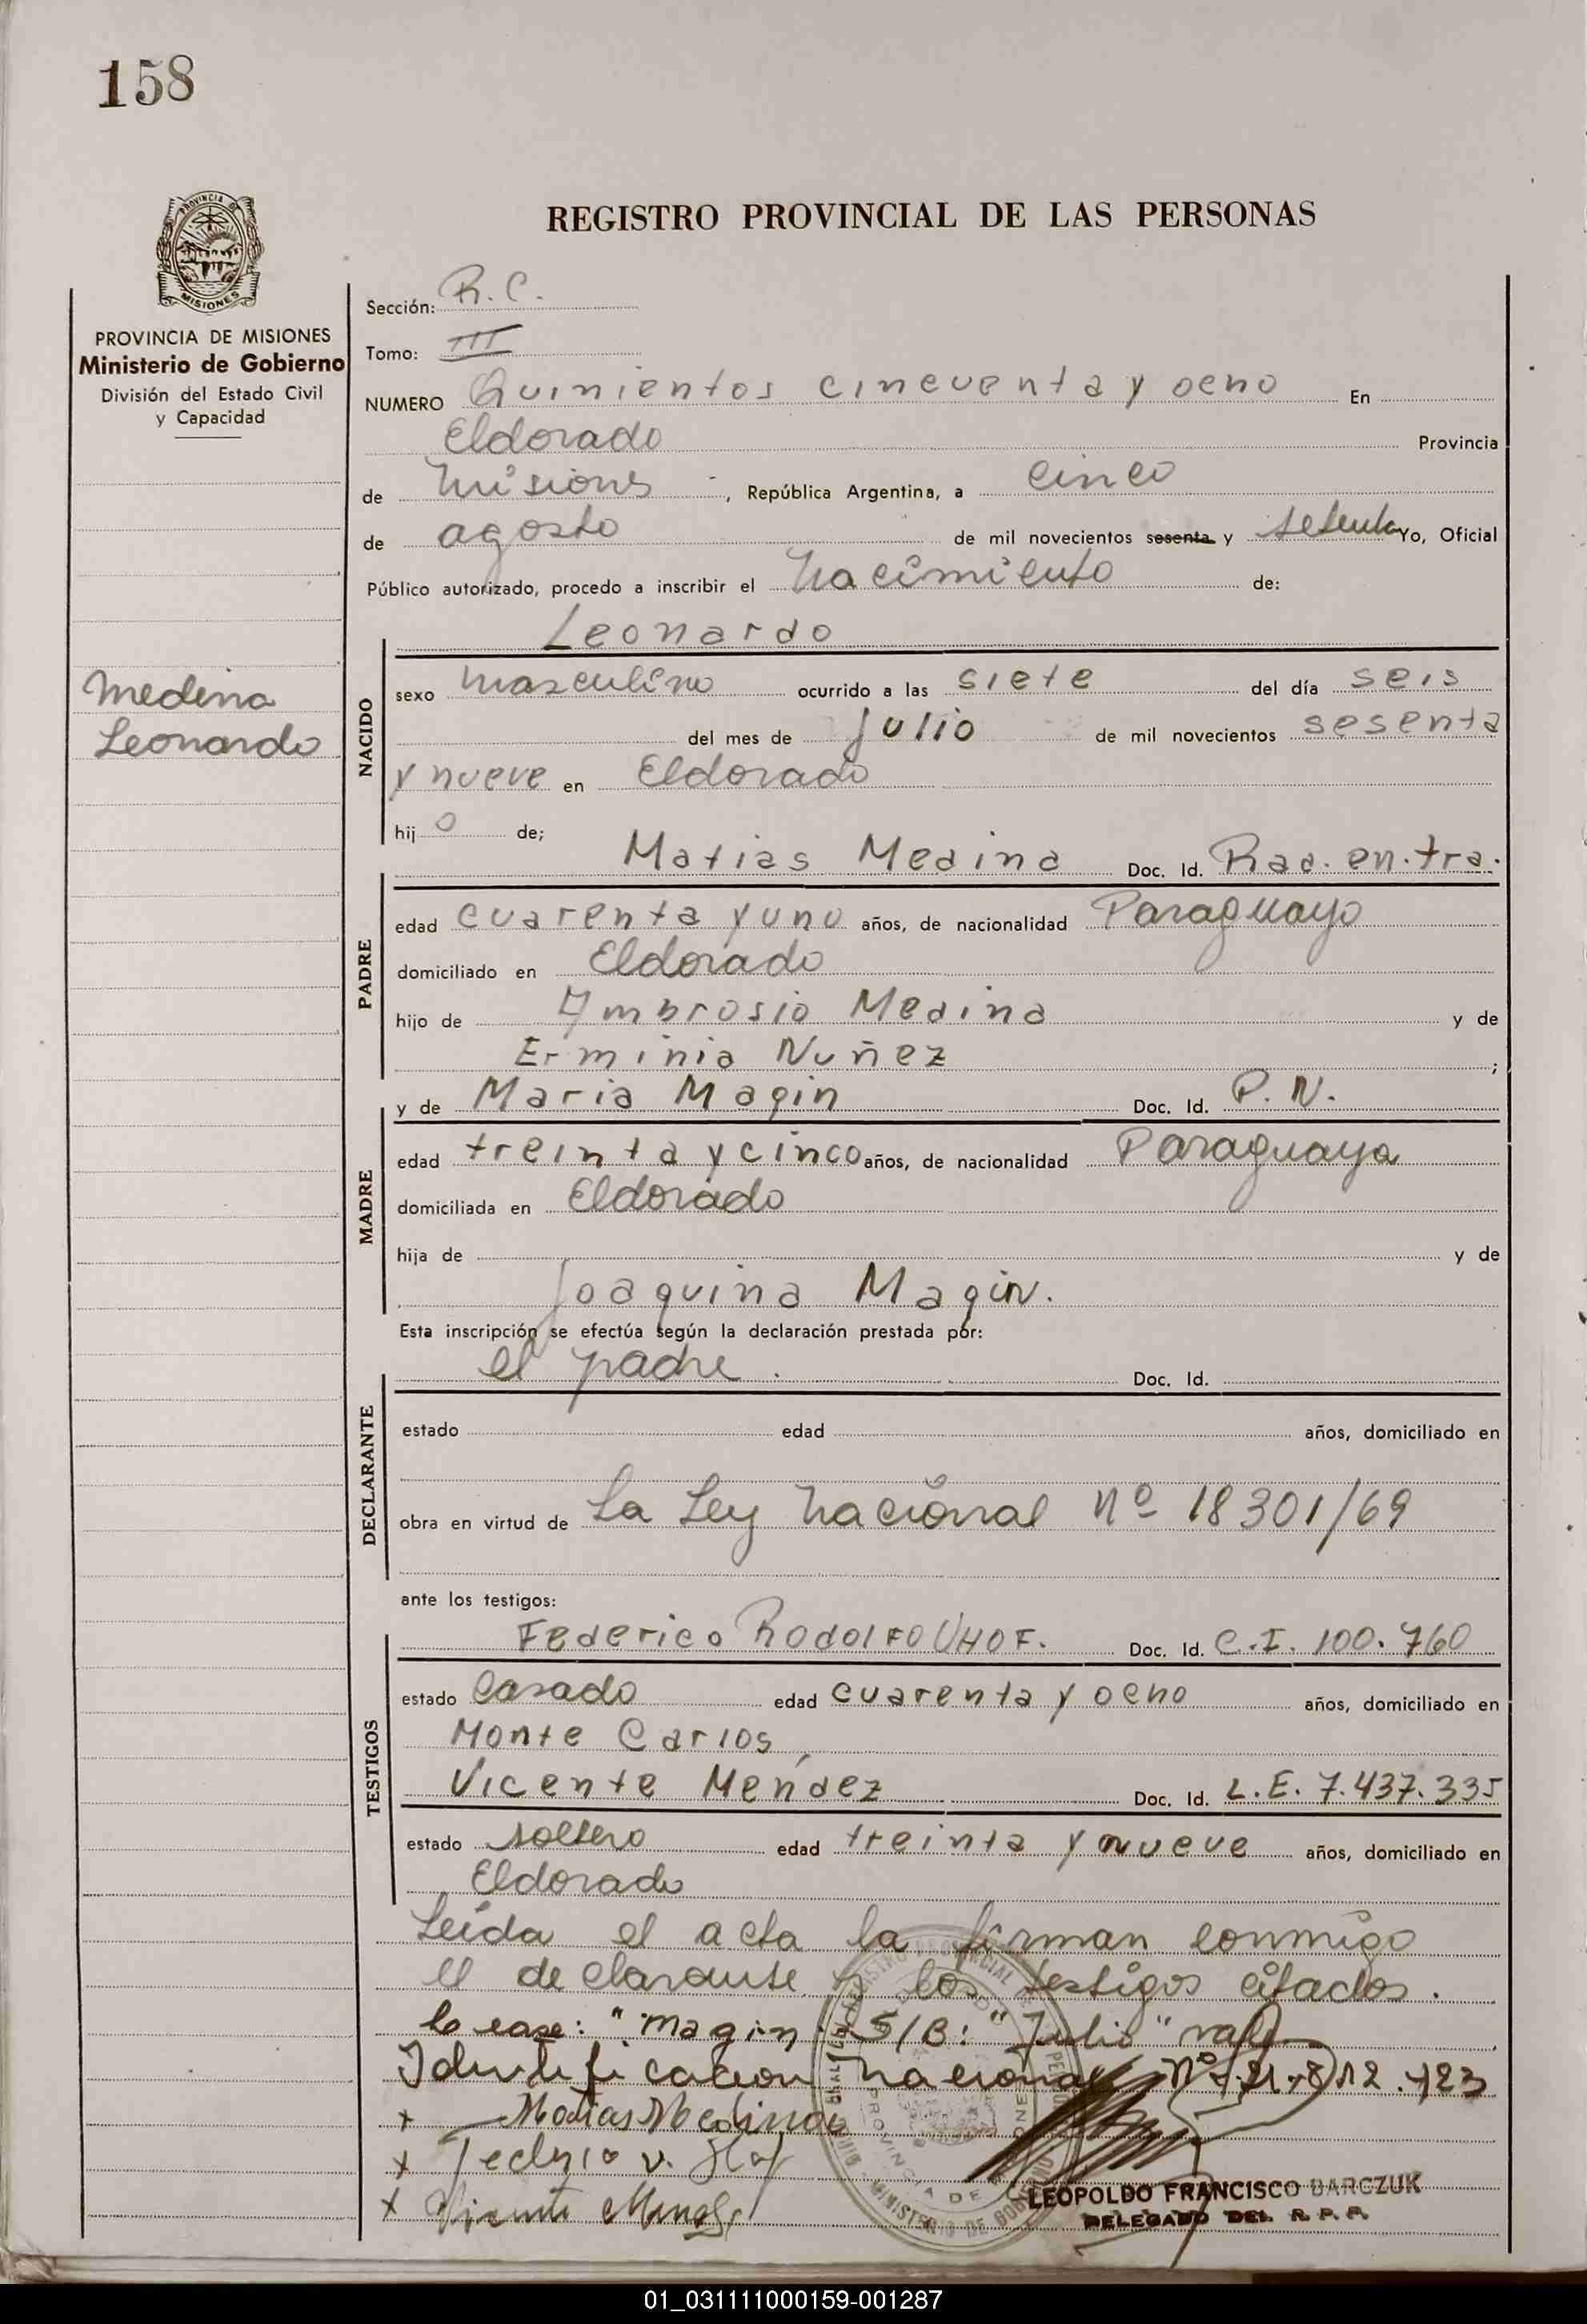 158
PROVINCIA DE MISIONES
Ministerio de Gobierno
División del Estado Civil
y Capacidad
Medina
Leonardo
REGISTRO PROVINCIAL DE LAS PERSONAS
Sección: R. C.
Tomo: III
NUMERO Quinientos cincuenta y ocho En
Eldorado Provincia
de Misiones, República Argentina, a cinco
de agosto de mil novecientos sesenta y setenta Yo, Oficial
Público autorizado, procedo a inscribir el Nacimiento de:
Leonardo
NACIDO
sexo masculino ocurrido a las siete del día seis
del mes de Julio de mil novecientos sesenta
y nueve en Eldorado
hij o de;
Matias Medina Doc. Id. Rad. en. tra.
PADRE
edad cuarenta y uno años, de nacionalidad Paraguayo
domiciliado en Eldorado
hijo de Ambrosio Medina y de
Erminia Nuñez ;
y de Maria Magin Doc. Id. P. N.
MADRE
edad treinta y cinco años, de nacionalidad Paraguaya
domiciliada en Eldorado
hija de y de
Joaquina Magin.
Esta inscripción se efectúa según la declaración prestada por:
el padre. Doc. Id.
DECLARANTE
estado edad años, domiciliado en
obra en virtud de La Ley Nacional Nº 18301/69
ante los testigos:
Federico Rodolfo Uhof. Doc. Id. C.I. 100.760
TESTIGOS
estado Casado edad cuarenta y ocho años, domiciliado en
Monte Carlos
Vicente Mendez Doc. Id. L.E. 7.437.335
estado soltero edad treinta y nueve años, domiciliado en
Eldorado
Leída el acta la firman conmigo
el declarante y los testigos citados.
lease: "Magin" S/B: "Julio" vale
Identificacion Nacional Nº 21.812.423
x Matias Medina
x
x Vicente
LEOPOLDO FRANCISCO BARCZUK
DELEGADO DEL R. P. P.
01_031111000159-001287